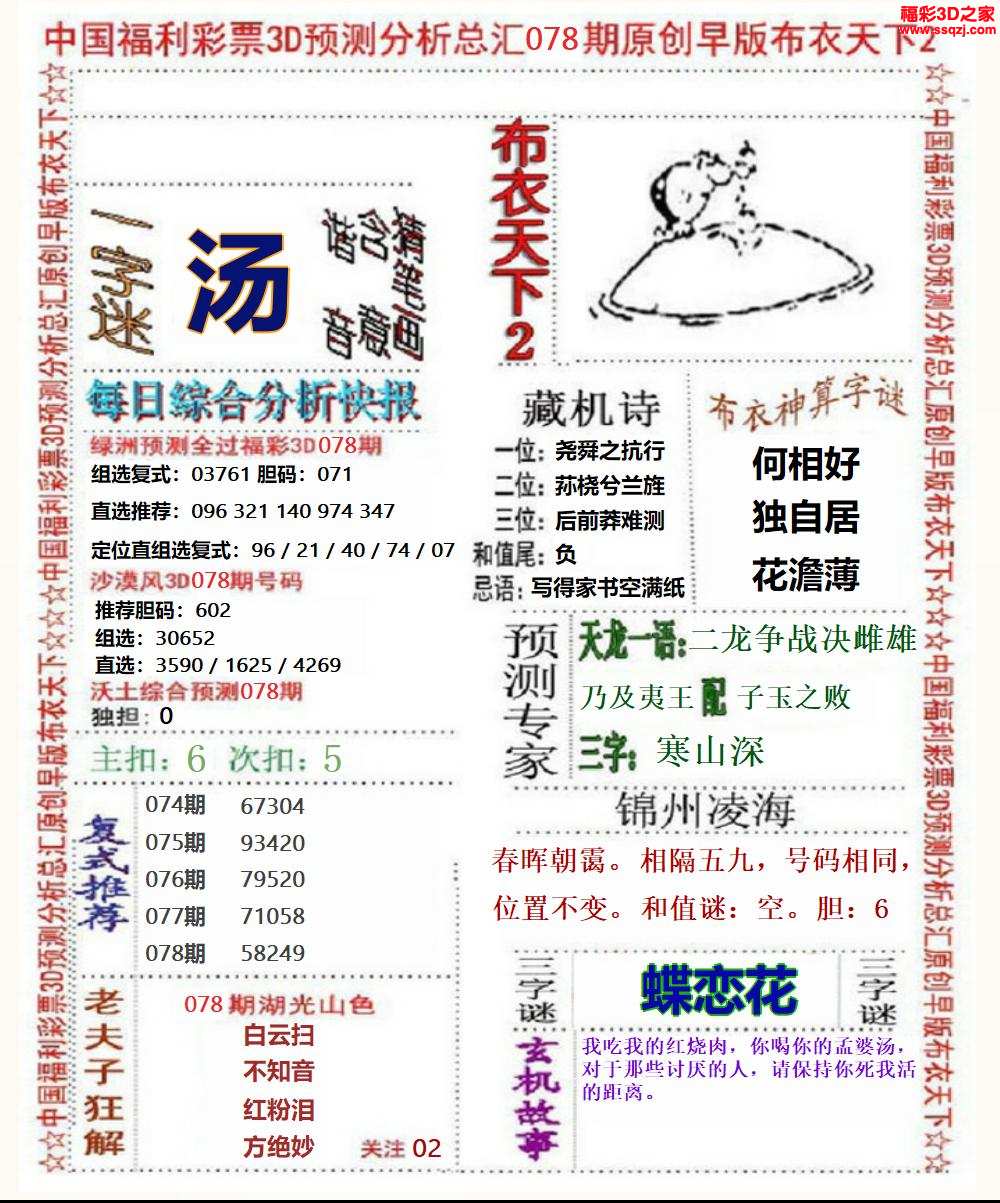 福彩3D之家
www.ssqzj.com
中国福利彩票3D预测分析总汇078期原创早版布衣天下2
☆☆中国福利彩票3D预测分析总汇原创早版布衣天下☆☆☆☆中国福利彩票3D预测分析总汇原创早版布衣天下☆☆
一字迷
汤
猜谜语
含笔画
谐音意
布衣天下2
每日综合分析快报
绿洲预测全过福彩3D078期
组选复式：03761 胆码：071
直选推荐：096 321 140 974 347
定位直组选复式：96 / 21 / 40 / 74 / 07
沙漠风3D078期号码
推荐胆码：602
组选：30652
直选：3590 / 1625 / 4269
沃土综合预测078期
独担：0
主扣：6 次扣：5
复式推荐
074期 67304
075期 93420
076期 79520
077期 71058
078期 58249
老夫子狂解
078期湖光山色
白云扫
不知音
红粉泪
方绝妙
关注 02
藏机诗
一位：尧舜之抗行
二位：荪桡兮兰旌
三位：后前莽难测
和值尾：负
忌语：写得家书空满纸
布衣神算字谜
何相好
独自居
花澹薄
预测专家
天龙一语：二龙争战决雌雄
乃及夷王 配 子玉之败
三字：寒山深
锦州凌海
春晖朝霭。相隔五九，号码相同，
位置不变。和值谜：空。胆：6
三字谜
蝶恋花
三字谜
玄机故事
我吃我的红烧肉，你喝你的孟婆汤，
对于那些讨厌的人，请保持你死我活
的距离。
☆☆中国福利彩票3D预测分析总汇原创早版布衣天下☆☆☆☆中国福利彩票3D预测分析总汇原创早版布衣天下☆☆